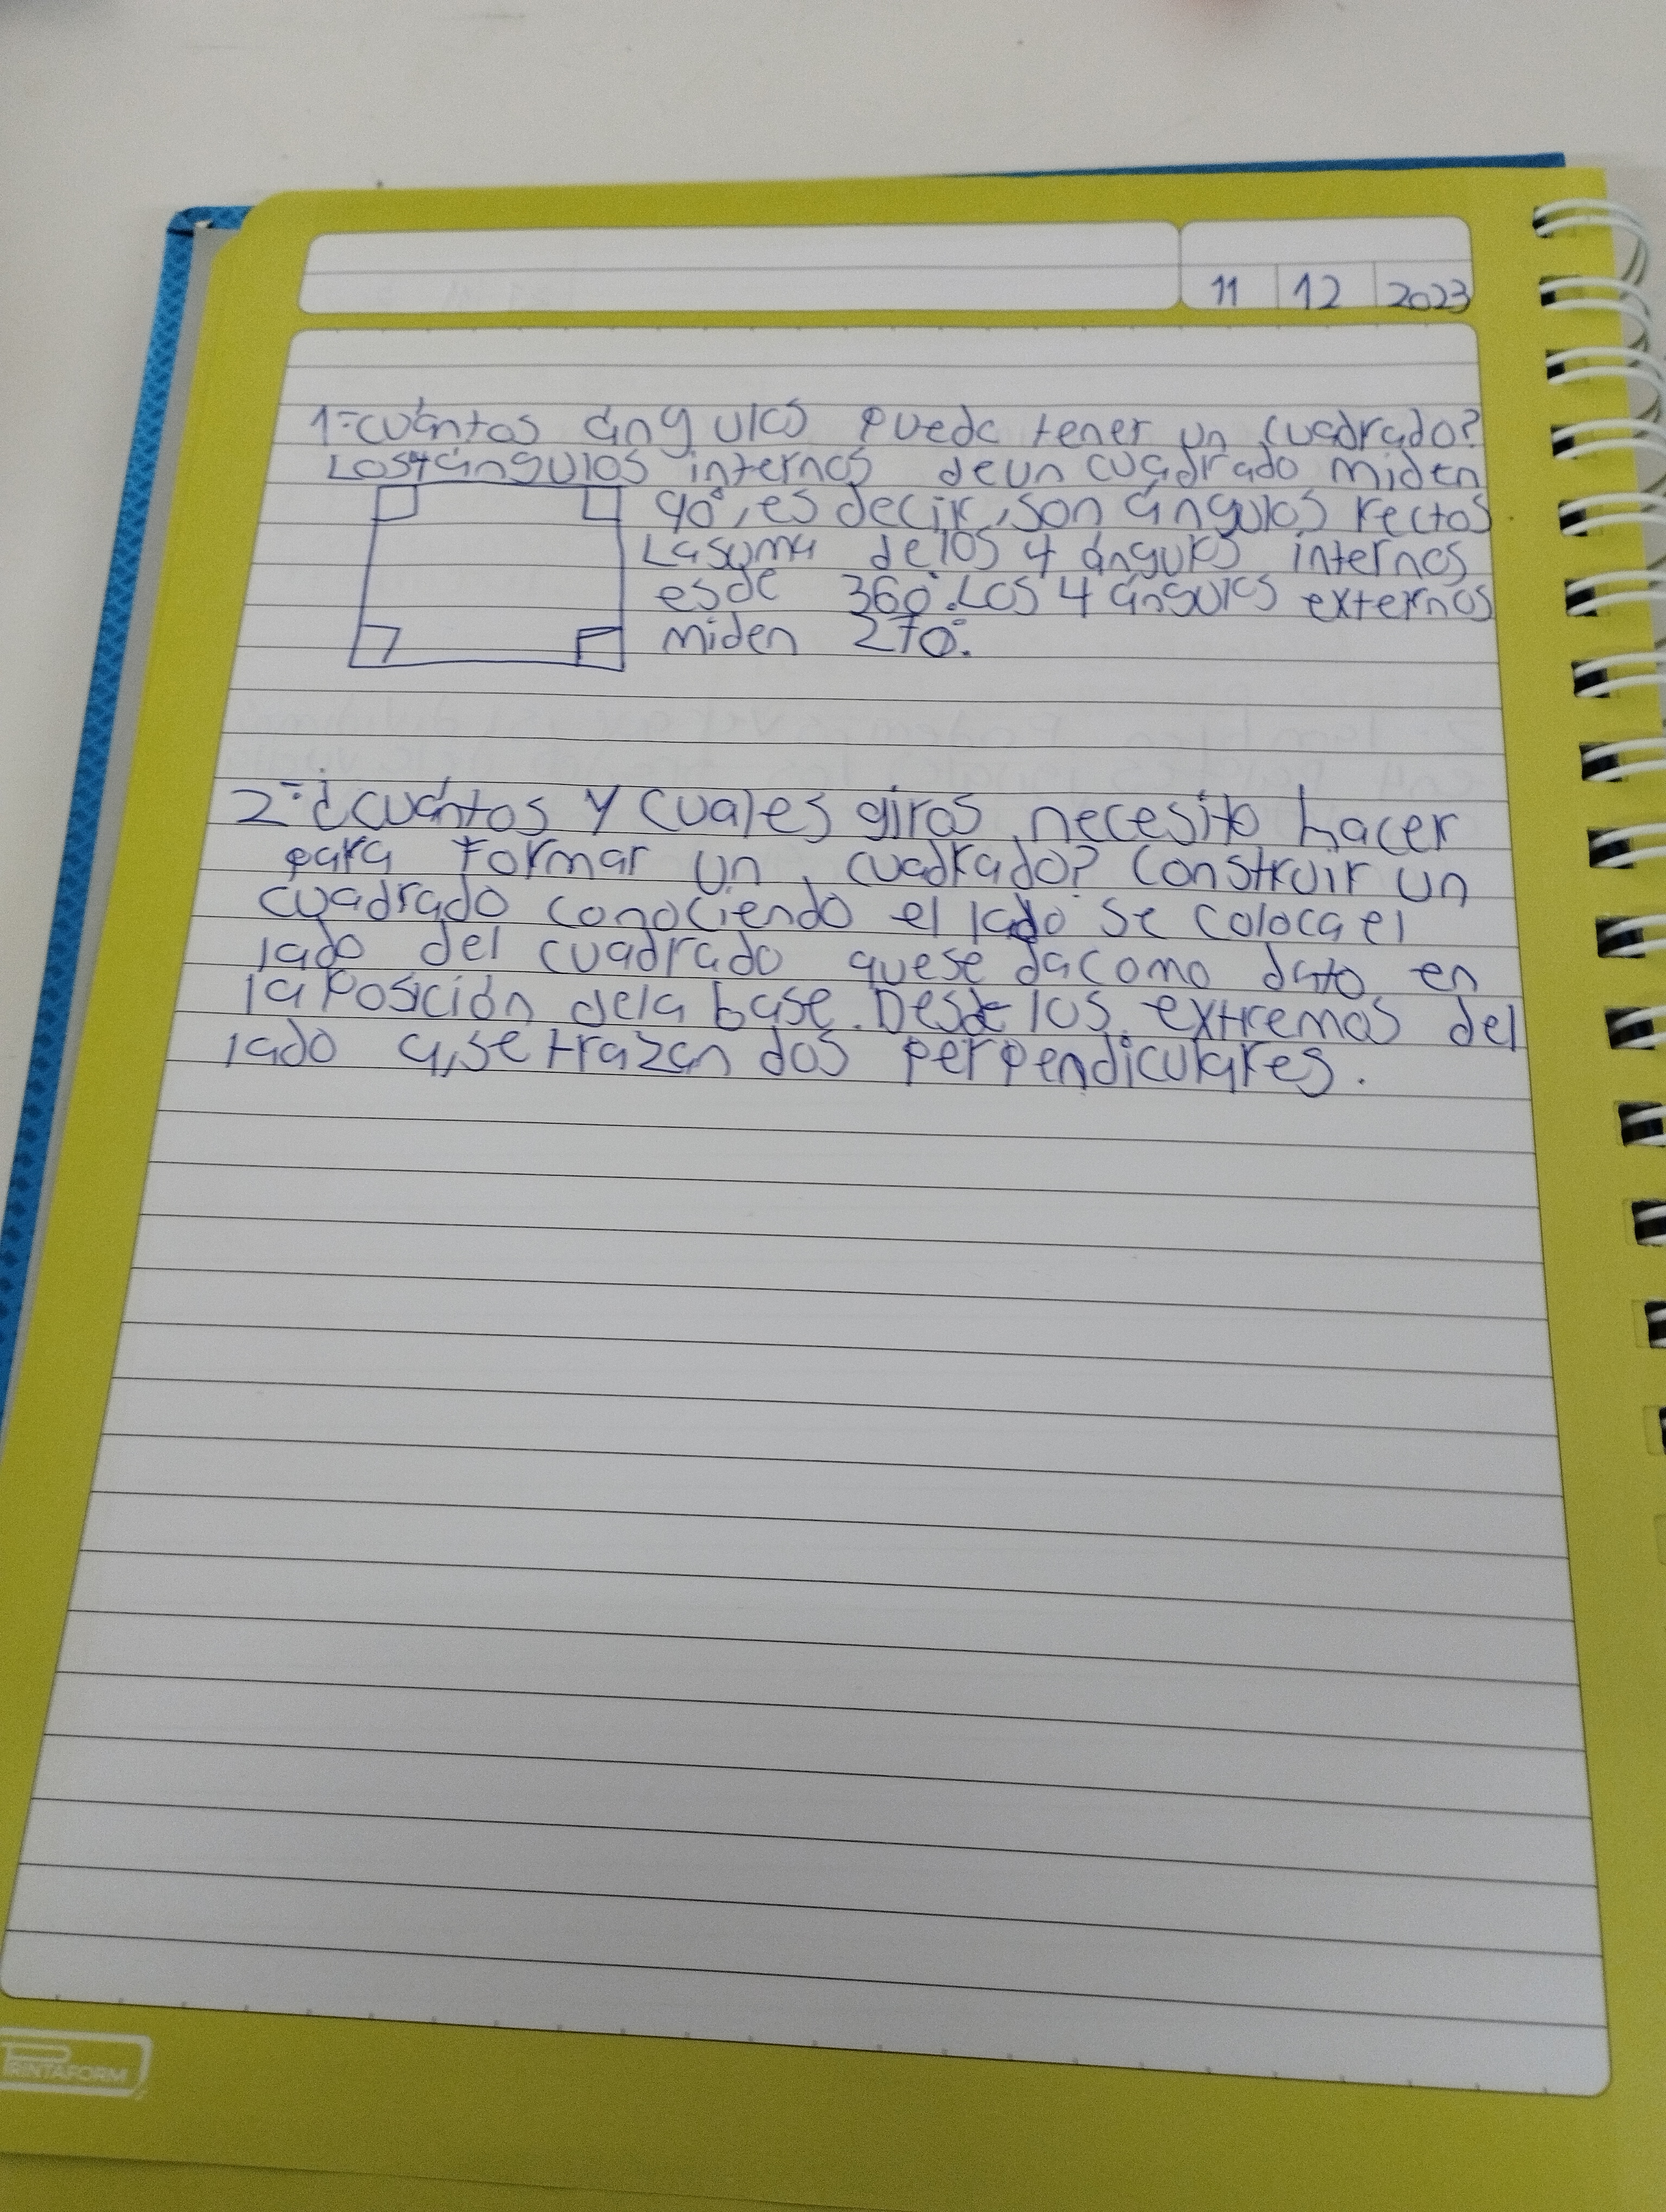 11 12 2023
1=cuántos ángulos puede tener un cuadrado?
Los 4 ángulos internos de un cuadrado miden
90°, es decir, son ángulos rectos
La suma de los 4 ángulos internos
es de 360°. Los 4 ángulos externos
miden 270°.
2=¿cuántos y cuales giros necesito hacer
para formar un cuadrado? Construir un
cuadrado conociendo el lado se coloca el
lado del cuadrado que se da como dato en
la Posición de la base. Desde los extremos del
lado a, se trazan dos perpendiculares.
PRINTAFORM